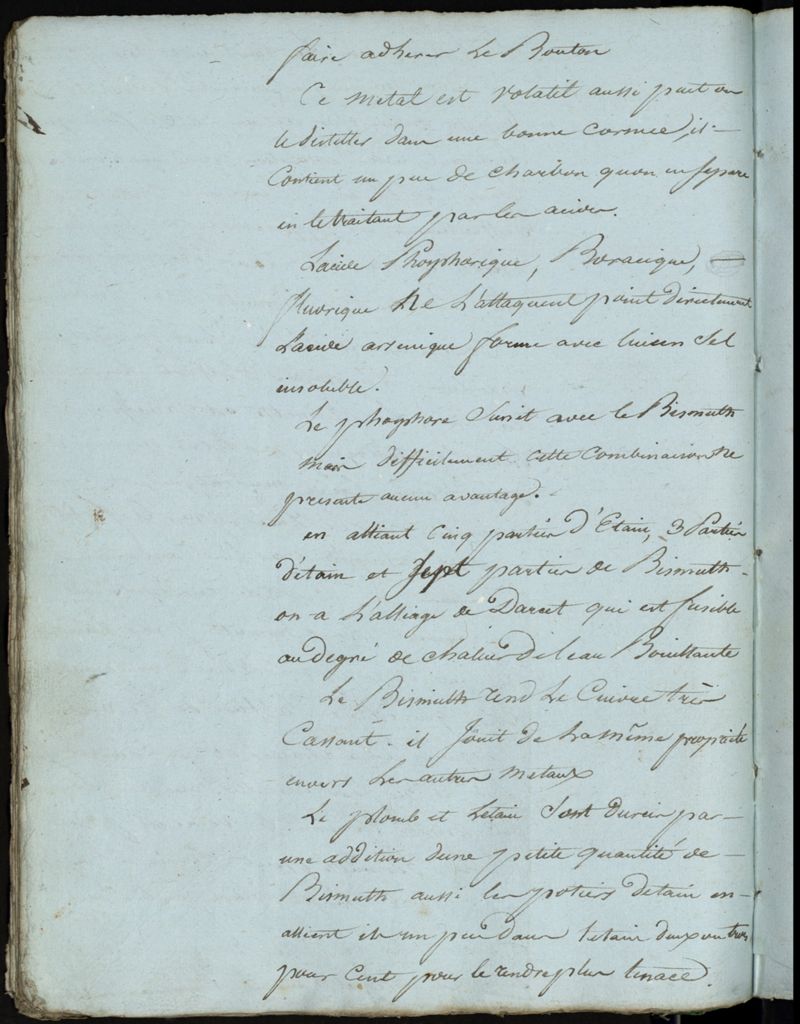 faire adherer le Bouton
Ce metal est volatil aussi peut on
le distiller dans une bonne cornue, il
Contient un peu de charbon quon en separe
en le traitant par les acides.
Lacide Phosphorique, Boracique,
fluorique Ne L'attaquent point directement
L'acide arsenique forme avec lui un Sel
insoluble.
Le phosphore Sunit avec le Bismuth
mais difficilement cette Combinaison Ne
presente aucun avantage.
en alliant Cinq parties d'Etain, 3 Parties
d'étain et Sept parties de Bismuth
on a L'alliage de Darcet qui est fusible
au degré de chaleur de leau Bouillante
Le Bismuth rend Le Cuivre très
Cassant. il Jouit de la même propriété
envers Les autres metaux
Le plomb et Letain Sont durcis par
une addition dune petite quantité de
Bismuth aussi les potiers detain en
allient ils un peu dans letain deux ou trois
pour Cent pour le rendre plus tenace.